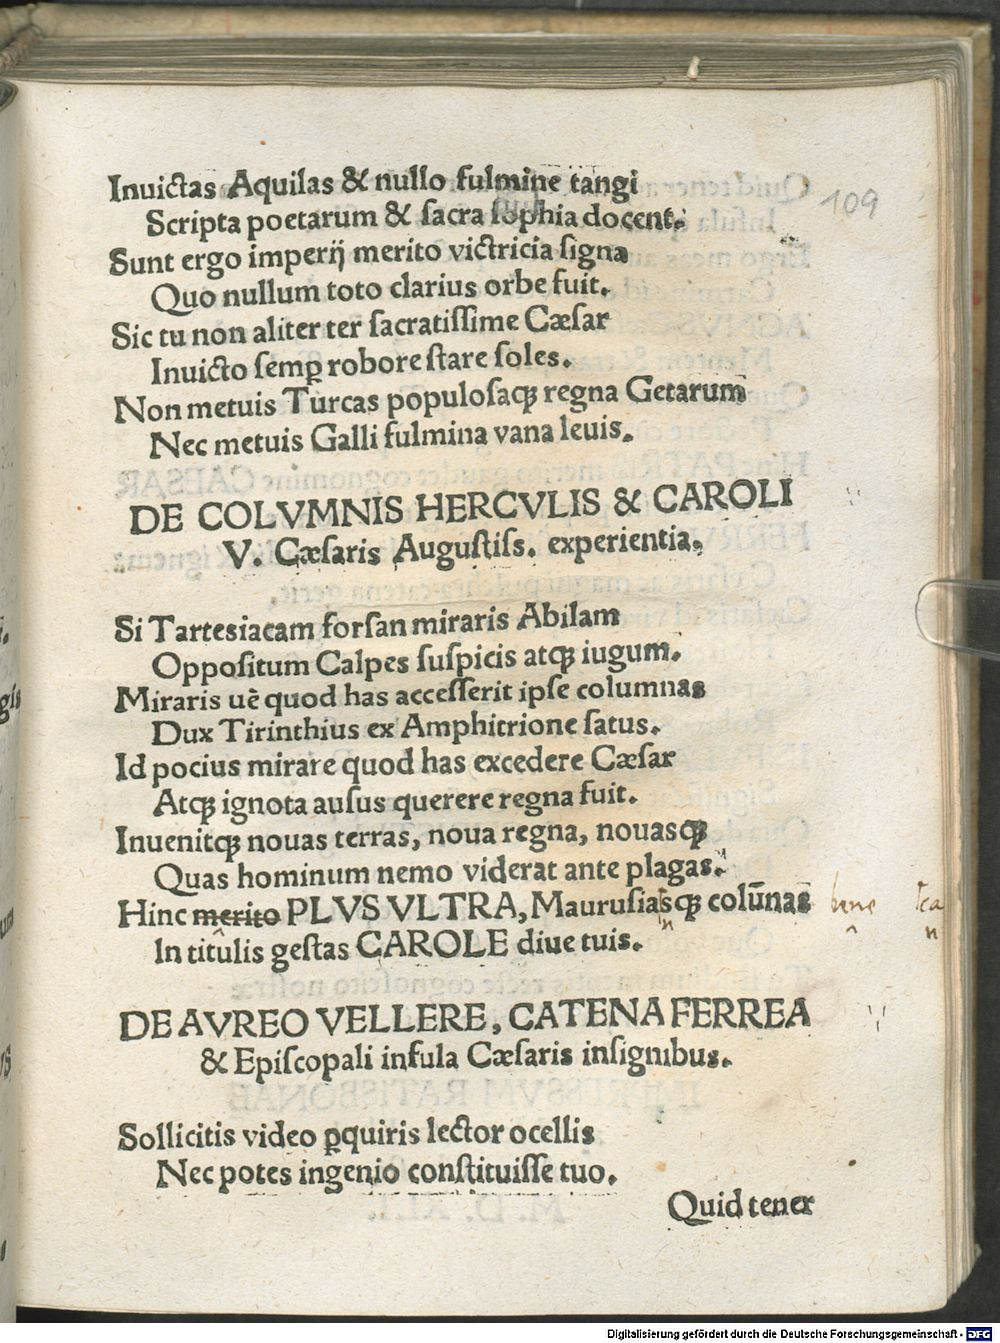 109
Inuictas Aquilas & nullo fulmine tangi
Scripta poetarum & sacra sophia docent.
Sunt ergo imperij merito victricia signa
Quo nullum toto clarius orbe fuit.
Sic tu non aliter ter sacratissime Cæsar
Inuicto semꝑ robore stare soles.
Non metuis Turcas populosaqꝫ regna Getarum
Nec metuis Galli fulmina vana leuis.
DE COLVMNIS HERCVLIS & CAROLI
V. Cæsaris Augustiss. experientia.
Si Tartesiacam forsan miraris Abilam
Oppositum Calpes suspicis atqꝫ iugum.
Miraris uè quod has accesserit ipse columnas
Dux Tirinthius ex Amphitrione satus.
Id pocius mirare quod has excedere Cæsar
Atqꝫ ignota ausus querere regna fuit.
Inuenitqꝫ nouas terras, noua regna, nouasqꝫ
Quas hominum nemo viderat ante plagas.
Hinc merito PLVS VLTRA, Maurusiasqꝫ colūnas bene
In titulis gestas CAROLE diue tuis.
DE AVREO VELLERE, CATENA FERREA
& Episcopali infula Cæsaris insignibus.
Sollicitis video ꝑquiris lector ocellis
Nec potes ingenio constituisse tuo.
Quid tener
Digitalisierung gefördert durch die Deutsche Forschungsgemeinschaft - DFG